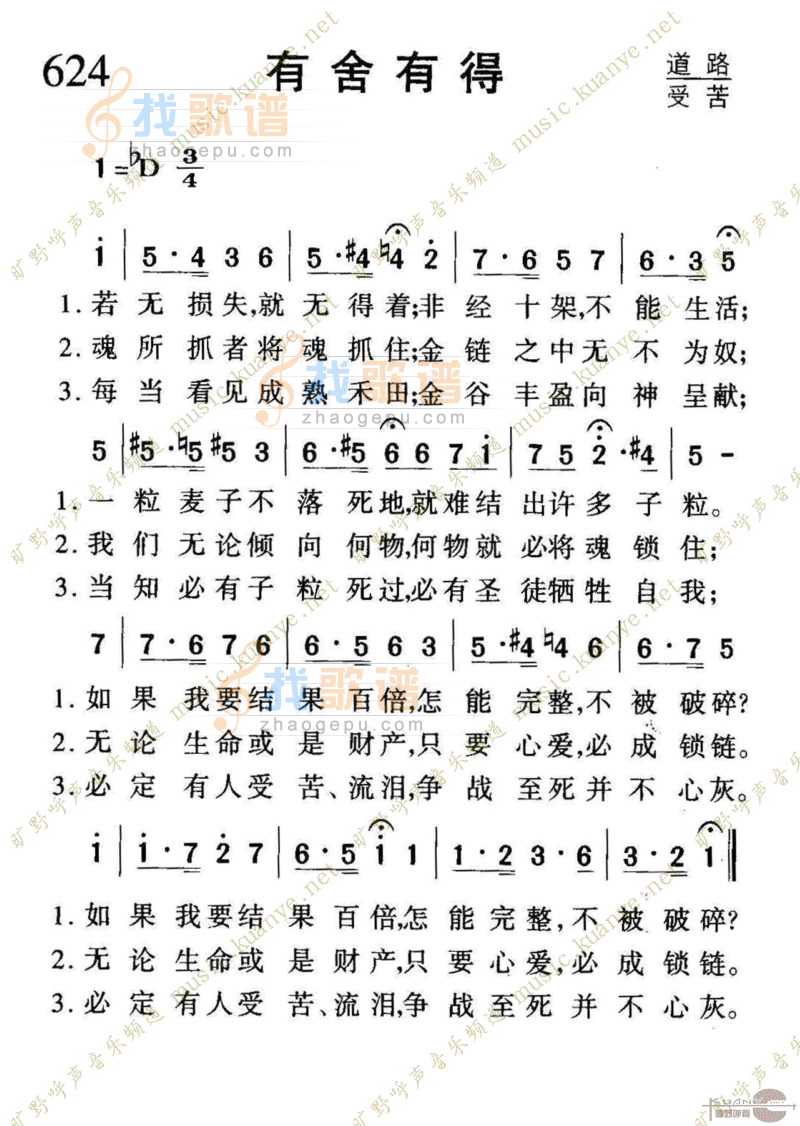 624 有舍有得 道路
受苦
找歌谱
zhaogepu.com
1=♭D 3/4
i | 5·4 3 6 | 5·#4 ♮4 2 | 7·6 5 7 | 6·3 5
1.若无损失,就无得着;非经十架,不能生活;
2.魂所抓者将魂抓住;金链之中无不为奴;
3.每当看见成熟禾田;金谷丰盈向神呈献;
找歌谱
zhaogepu.com
5 | #5·♮5 #5 3 | 6·#5 6 6 7 i | 7 5 2·#4 | 5 -
1.一粒麦子不落死地,就难结出许多子粒。
2.我们无论倾向何物,何物就必将魂锁住;
3.当知必有子粒死过,必有圣徒牺牲自我;
7 | 7·6 7 6 | 6·5 6 3 | 5·#4 ♮4 6 | 6·7 5
找歌谱
zhaogepu.com
1.如果我要结果百倍,怎能完整,不被破碎?
2.无论生命或是财产,只要心爱,必成锁链。
3.必定有人受苦、流泪,争战至死并不心灰。
i | i·7 2 7 | 6·5 i 1 | 1·2 3·6 | 3·2 1 ‖
1.如果我要结果百倍,怎能完整,不被破碎?
2.无论生命或是财产,只要心爱,必成锁链。
3.必定有人受苦、流泪,争战至死并不心灰。
旷野呼声音乐频道 music.kuanye.net